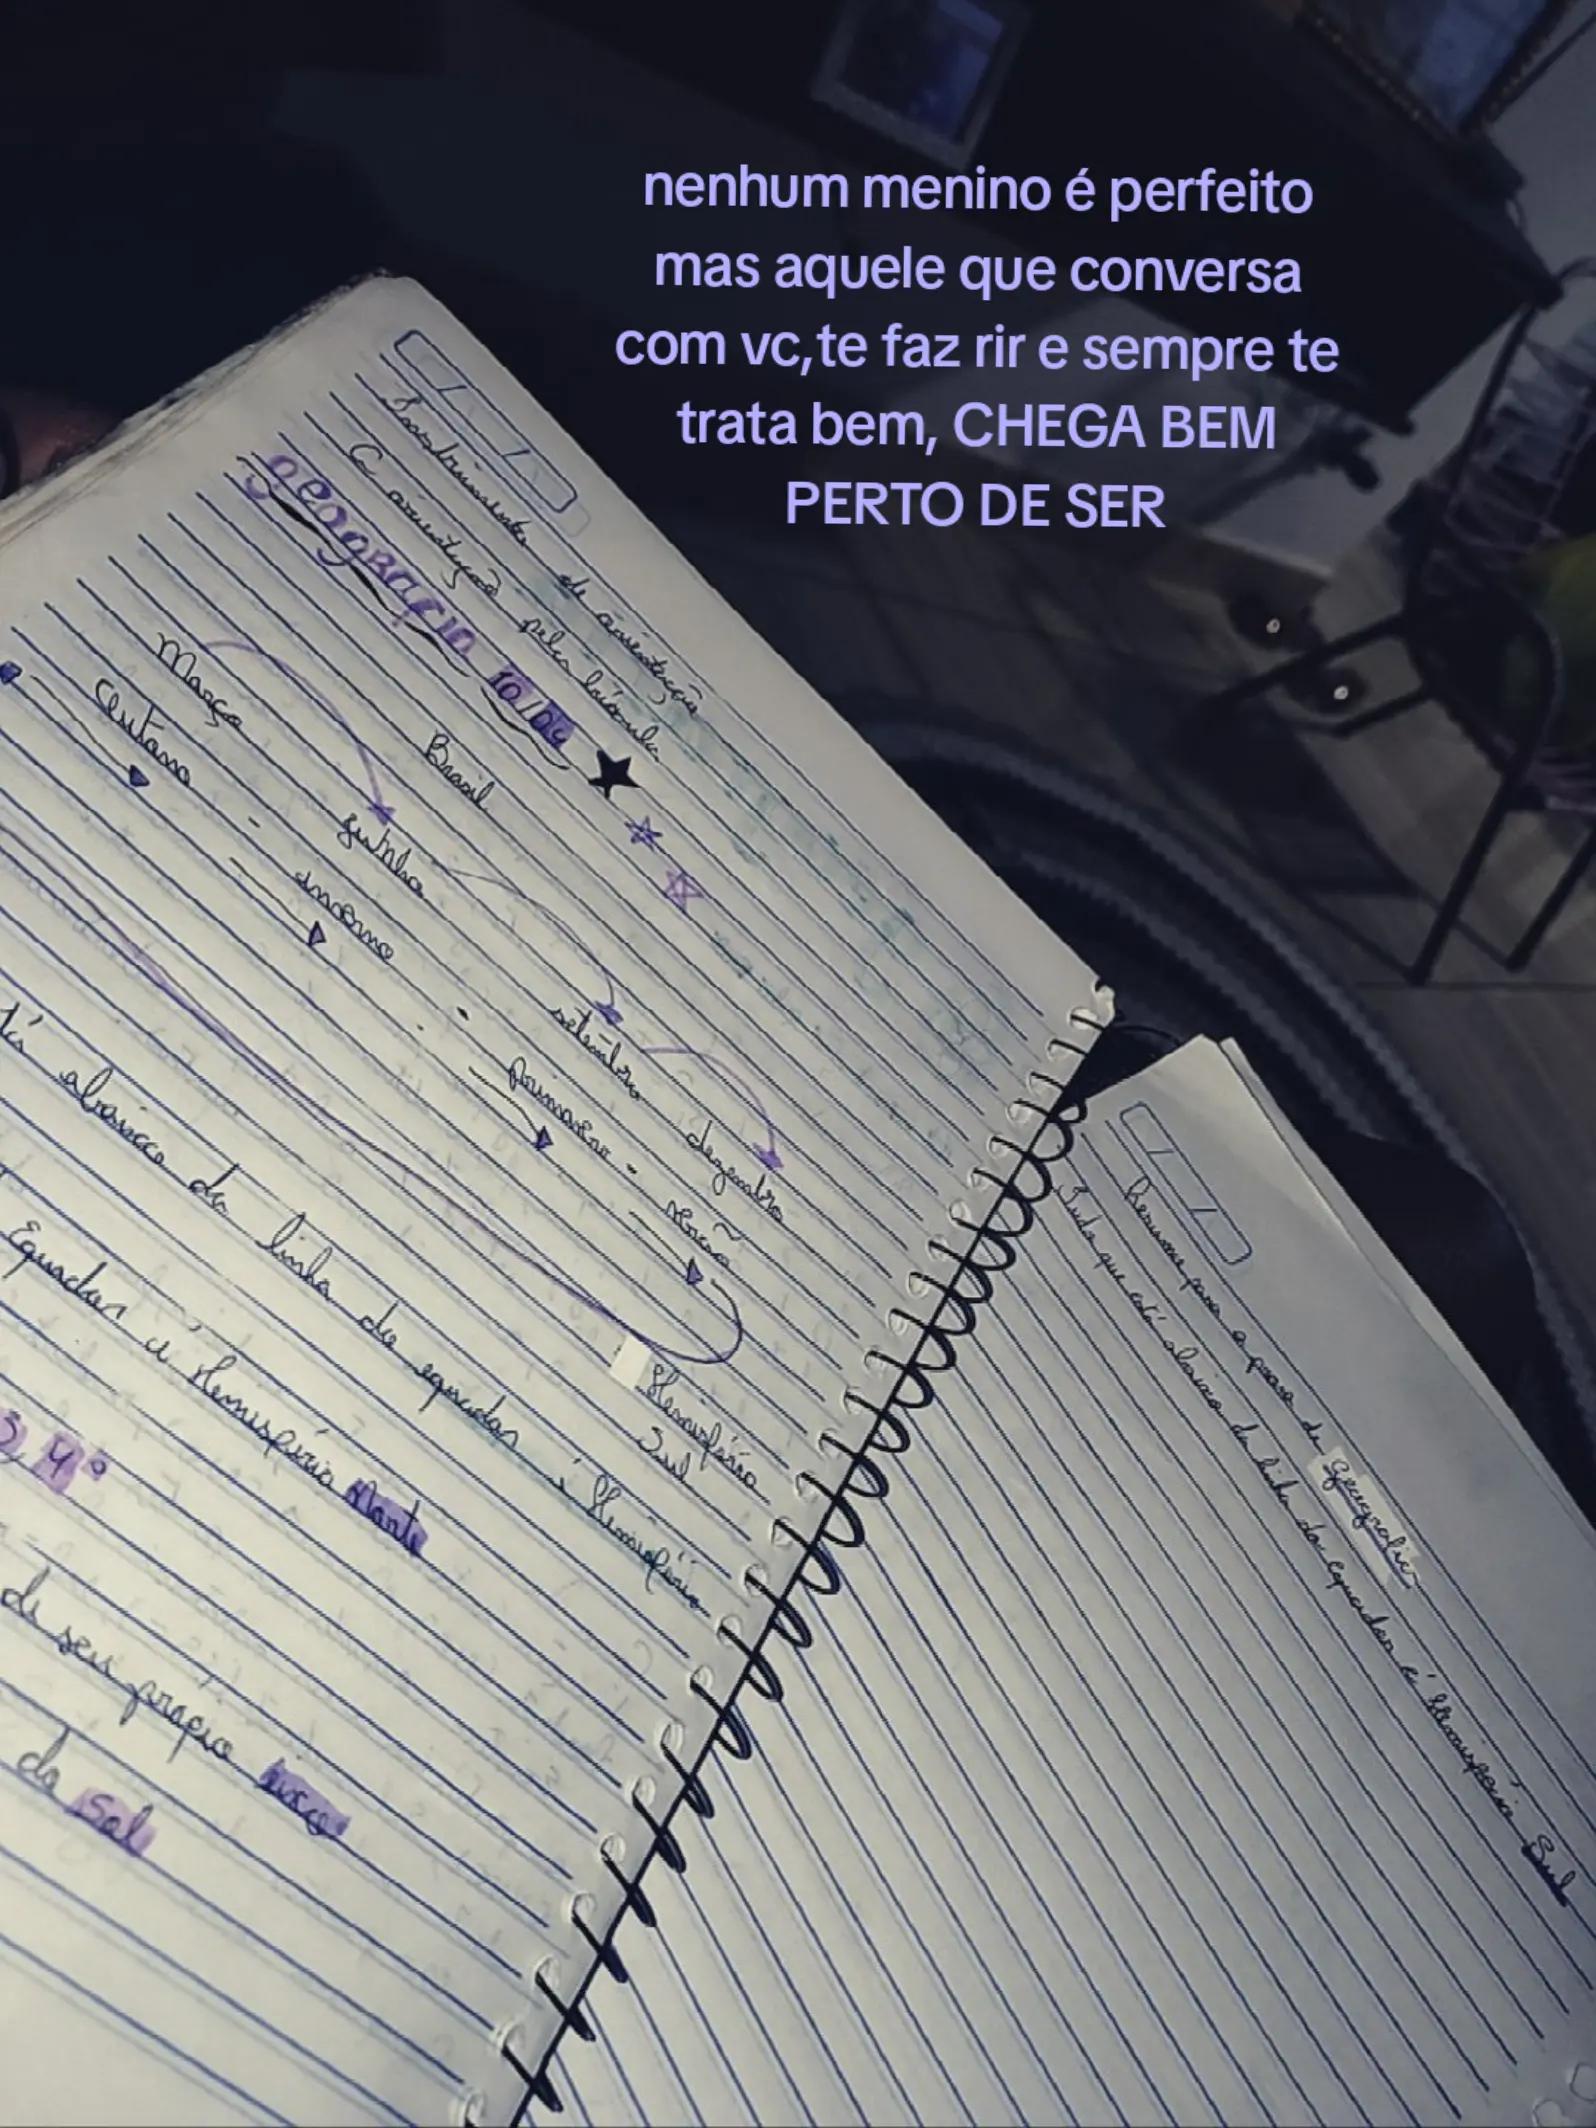 nenhum menino é perfeito
mas aquele que conversa
com vc,te faz rir e sempre te
trata bem, CHEGA BEM
PERTO DE SER
Instrumento de orientação
pela bússula
geografia 10/04
Brasil
Março junho setembro dezembro
outono - inverno - primavera - verão
Hemisfério
Sul
abaixo da linha do equador é Hemisfério
Equador é Hemisfério Norte
3, 4°
de seu próprio eixo
do sol
Resumo para a prova de geografia
Tudo que está abaixo da linha do equador é Hemisfério Sul